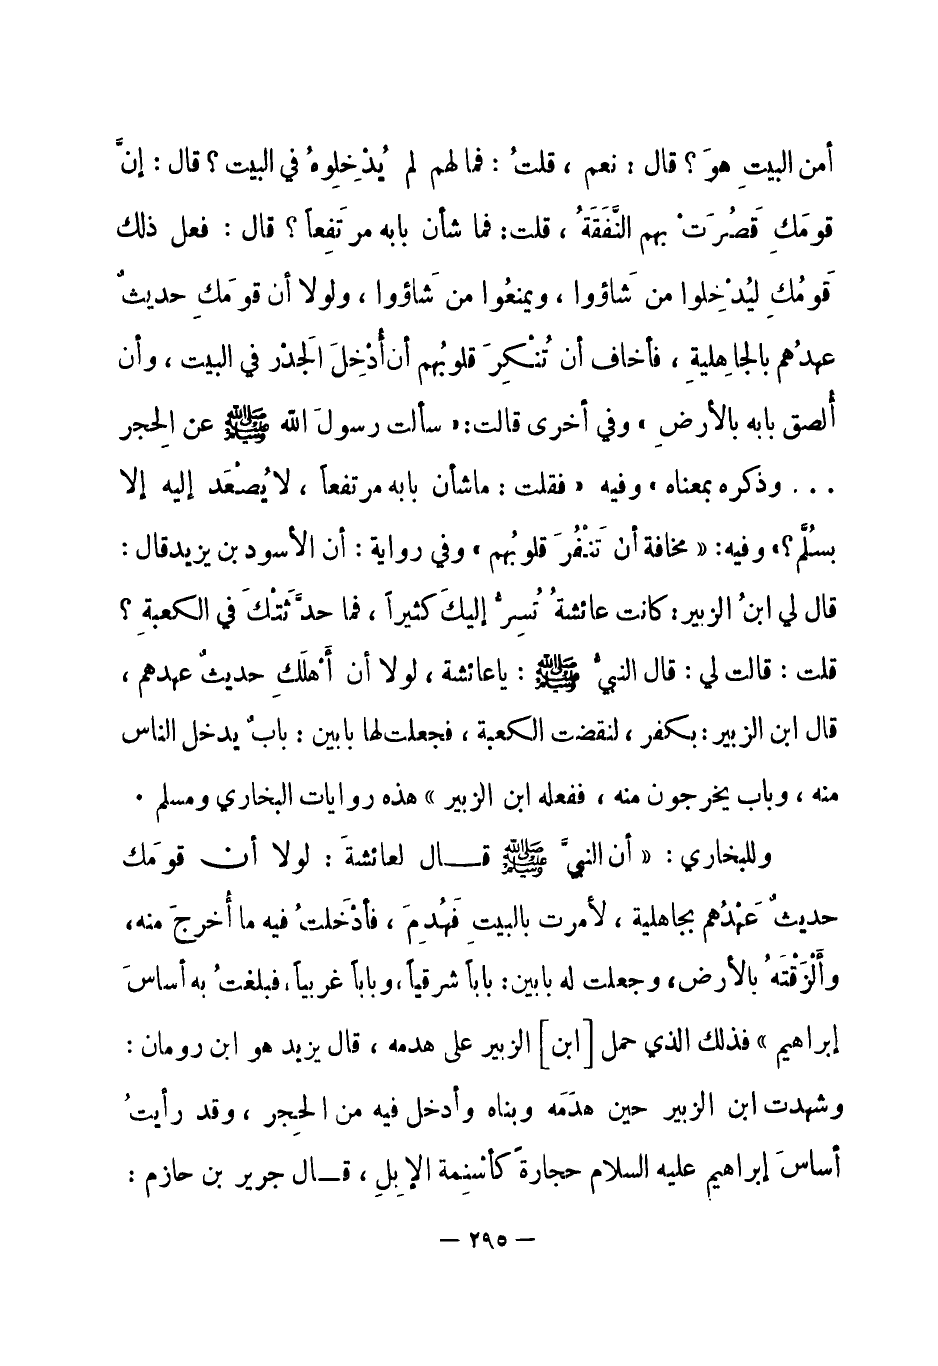 أمن البيتِ هوَ ؟ قال : نعم ، قلتُ : فما لهم لم يُدْخِلوهُ في البيت ؟ قال : إنَّ
قومَكِ قَصُرَتْ بهم النَّفَقَةُ ، قلت: فما شأن بابه مرتَفِعاً ؟ قال : فعل ذلك
قَومُكِ ليُدْخِلوا من شَاؤوا ، ويمنعُوا من شَاؤوا ، ولولا أن قومَكِ حديثٌ
عهدُهم بالجاهِليةِ ، فأخاف أن تُنْكِرَ قلوبُهم أن أُدْخِلَ الَجدْر في البيت ، وأن
أُلصق بابه بالأرضِ » وفي أخرى قالت: « سألت رسولَ الله ﷺ عن الِحجر
... وذكره بمعناه » وفيه « فقلت : ماشأن بابه مرتفعاً ، لا يُصْعَد إليه إلا
بسُلَّم؟» وفيه: « مخافة أن تَنْفُرَ قلوبُهم » وفي رواية : أن الأسود بن يزيد قال :
قال لي ابنُ الزبير: كانت عائشةُ تُسِرُّ إليكَ كثيراً ، فما حدَّثَتْكَ في الكعبةِ ؟
قلت : قالت لي : قال النبيُّ ﷺ : ياعائشة ، لولا أن أَهْلَكِ حديثٌ عهدهم ،
قال ابن الزبير : بكفر ، لنقضت الكعبة ، فجعلت لها بابين : بابٌ يدخل الناس
منه ، وباب يخرجون منه ، ففعله ابن الزبير » هذه روايات البخاري ومسلم .
وللبخاري : « أن النبيَّ ﷺ قــال لعائشةَ : لولا أن قومَك
حديثٌ عَهْدُهم بجاهلية ، لأمرت بالبيتِ فَهُدِمَ ، فأدْخَلتُ فيه ما أُخرجَ منه،
وأَلْزَقْتَهُ بالأرض، وجعلت له بابين: باباً شرقياً، وباباً غربياً، فبلغتُ به أساسَ
إبراهيم » فذلك الذي حمل [ابن] الزبير على هدمه ، قال يزيد هو ابن رومان :
وشهدت ابن الزبير حين هدَمَه وبناه وأدخل فيه من الحِجر ، وقد رأيتُ
أساسَ إبراهيم عليه السلام حجارةً كأسْنِمة الإبلِ ، قــال جرير بن حازم :
— ٢٩٥ —